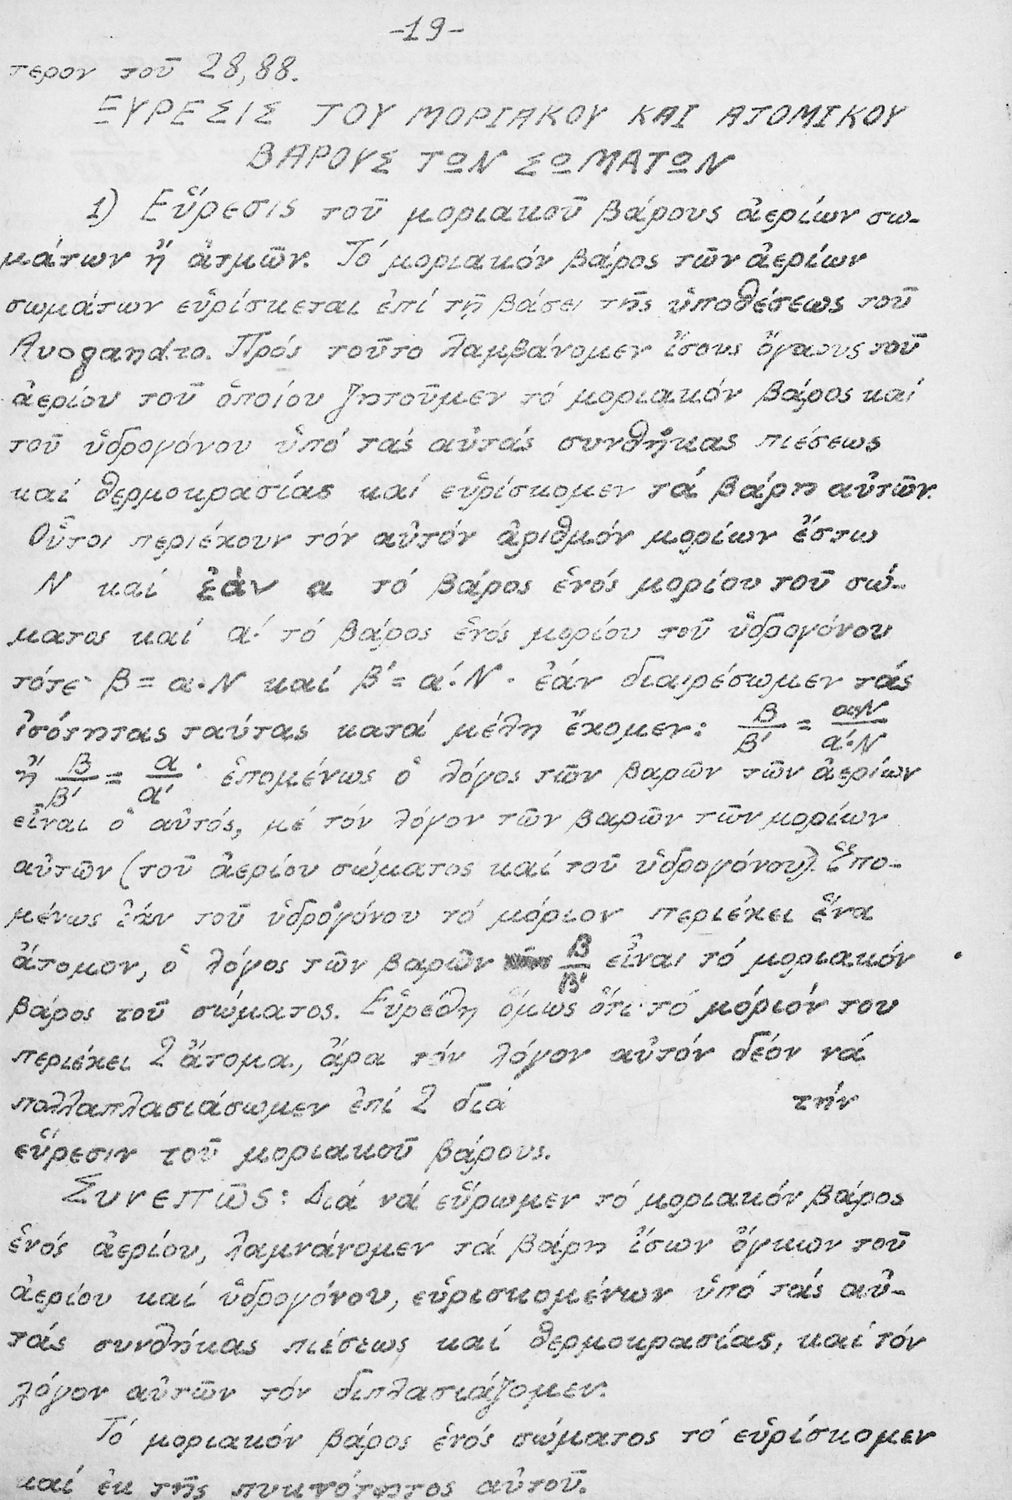 -19-
τερον τοῦ 28,88.
ΕΥΡΕΣΙΣ ΤΟΥ ΜΟΡΙΑΚΟΥ ΚΑΙ ΑΤΟΜΙΚΟΥ
ΒΑΡΟΥΣ ΤΩΝ ΣΩΜΑΤΩΝ
1) Εὕρεσις τοῦ μοριακοῦ βάρους ἀερίων σω-
μάτων ἤ ἀτμῶν. Τό μοριακόν βάρος τῶν ἀερίων
σωμάτων εὑρίσκεται ἐπί τῇ βάσει τῆς ὑποθέσεως τοῦ
Avogandro. Πρός τοῦτο λαμβάνομεν ἴσους ὄγκους τοῦ
ἀερίου τοῦ ὁποίου ζητοῦμεν τό μοριακόν βάρος καί
τοῦ ὑδρογόνου ὑπό τάς αὐτάς συνθήκας πιέσεως
καί θερμοκρασίας καί εὑρίσκομεν τά βάρη αὐτῶν.
Οὗτοι περιέχουν τόν αὐτόν ἀριθμόν μορίων ἔστω
Ν καί ἐάν α τό βάρος ἑνός μορίου τοῦ σώ-
ματος καί α' τό βάρος ἑνός μορίου τοῦ ὑδρογόνου
τότε β = α.Ν καί β' = α'.Ν · ἐάν διαιρέσωμεν τάς
ἰσότητας ταύτας κατά μέλη ἔχομεν: β/β' = α.Ν/α'.Ν
ἤ β/β' = α/α' · ἑπομένως ὁ λόγος τῶν βαρῶν τῶν ἀερίων
εἶναι ὁ αὐτός, μέ τόν λόγον τῶν βαρῶν τῶν μορίων
αὐτῶν (τοῦ ἀερίου σώματος καί τοῦ ὑδρογόνου). Ἑπο-
μένως ἐάν τοῦ ὑδρογόνου τό μόριον περιέχει ἕνα
ἄτομον, ὁ λόγος τῶν βαρῶν β/β' εἶναι τό μοριακόν
βάρος τοῦ σώματος. Εὑρέθη ὅμως ὅτι τό μόριόν του
περιέχει 2 ἄτομα, ἄρα τόν λόγον αὐτόν δέον νά
πολλαπλασιάσωμεν ἐπί 2 διά τήν
εὕρεσιν τοῦ μοριακοῦ βάρους.
Συνεπῶς: Διά νά εὕρωμεν τό μοριακόν βάρος
ἑνός ἀερίου, λαμνάνομεν τά βάρη ἴσων ὄγκων τοῦ
ἀερίου καί ὑδρογόνου, εὑρισκομένων ὑπό τάς αὐ-
τάς συνθήκας πιέσεως καί θερμοκρασίας, καί τόν
λόγον αὐτῶν τόν διπλασιάζομεν.
Τό μοριακόν βάρος ἑνός σώματος τό εὑρίσκομεν
καί ἐκ τῆς πυκνότητος αὐτοῦ.